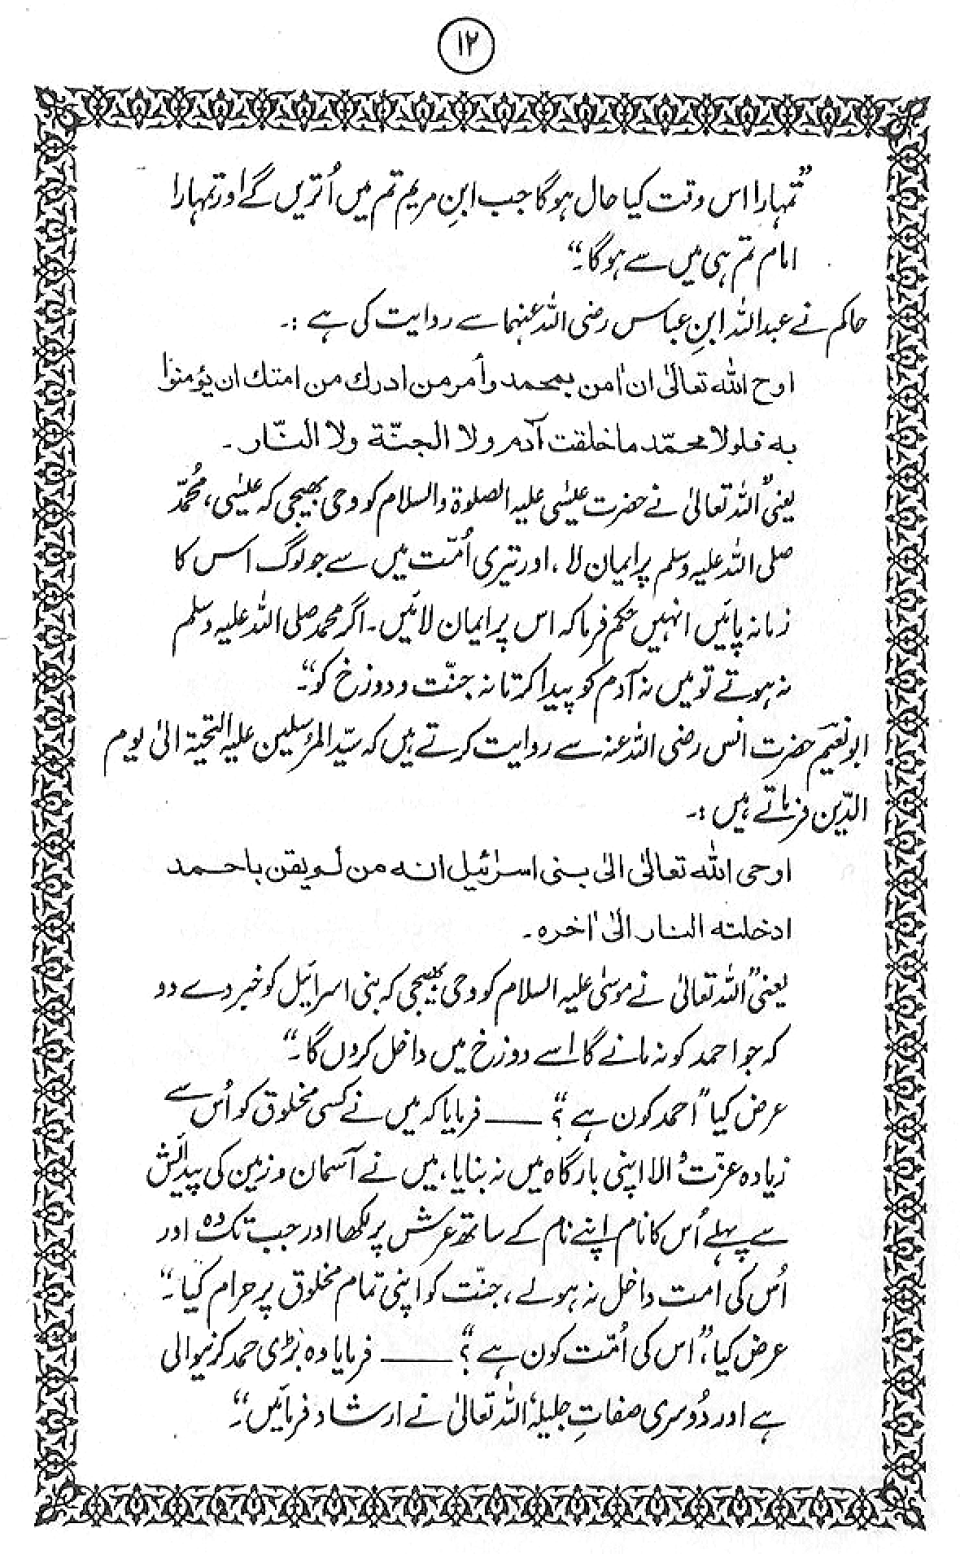 ۱۲
”تمہارا اس وقت کیا حال ہوگا جب ابنِ مریم تم میں اُتریں گے اور تمہارا
امام تم ہی میں سے ہوگا۔“
حاکم نے عبداللہ ابنِ عباس رضی اللہ عنہما سے روایت کی ہے :۔
اوح اللہ تعالیٰ ان اٰمن بمحمد وأمر من ادرك من امتك ان یؤمنوا
به فلولا محمّد ما خلقت آدم ولا الجنّة ولا النّار۔
یعنی ”اللہ تعالیٰ نے حضرت عیسٰی علیہ الصلوٰۃ والسلام کو وحی بھیجی کہ عیسٰی، محمّد
صلی اللہ علیہ وسلم پر ایمان لا، اور تیری اُمّت میں سے جو لوگ اس کا
زمانہ پائیں انہیں حکم فرما کہ اس پر ایمان لائیں۔ اگر محمد صلی اللہ علیہ وسلم
نہ ہوتے تو میں نہ آدم کو پیدا کرتا نہ جنّت و دوزخ کو“۔
ابو نعیم حضرت انس رضی اللہ عنہ سے روایت کرتے ہیں کہ سیّد المرسلین علیہ التحیۃ الیٰ یوم
الدّین فرماتے ہیں :۔
اوحی اللہ تعالیٰ الیٰ بنی اسرائیل انه من لم یقن باحمد
ادخلته النار الیٰ اٰخره۔
یعنی ”اللہ تعالیٰ نے موسیٰ علیہ السلام کو وحی بھیجی کہ بنی اسرائیل کو خبر دے دو
کہ جو احمد کو نہ مانے گا اسے دوزخ میں داخل کروں گا۔“
عرض کیا ”احمد کون ہے؟“ ——— فرمایا کہ میں نے کسی مخلوق کو اُس سے
زیادہ عزّت والا اپنی بارگاہ میں نہ بنایا، میں نے آسمان و زمین کی پیدائش
سے پہلے اُس کا نام اپنے نام کے ساتھ عرش پر لکھا اور جب تک وہ اور
اُس کی امت داخل نہ ہولے، جنّت کو اپنی تمام مخلوق پر حرام کیا۔“
عرض کیا، ”اس کی اُمّت کون ہے؟“ ——— فرمایا وہ بڑی حمد کرنیوالی
ہے اور دُوسری صفاتِ جلیلہ اللہ تعالیٰ نے ارشاد فرمائیں۔“